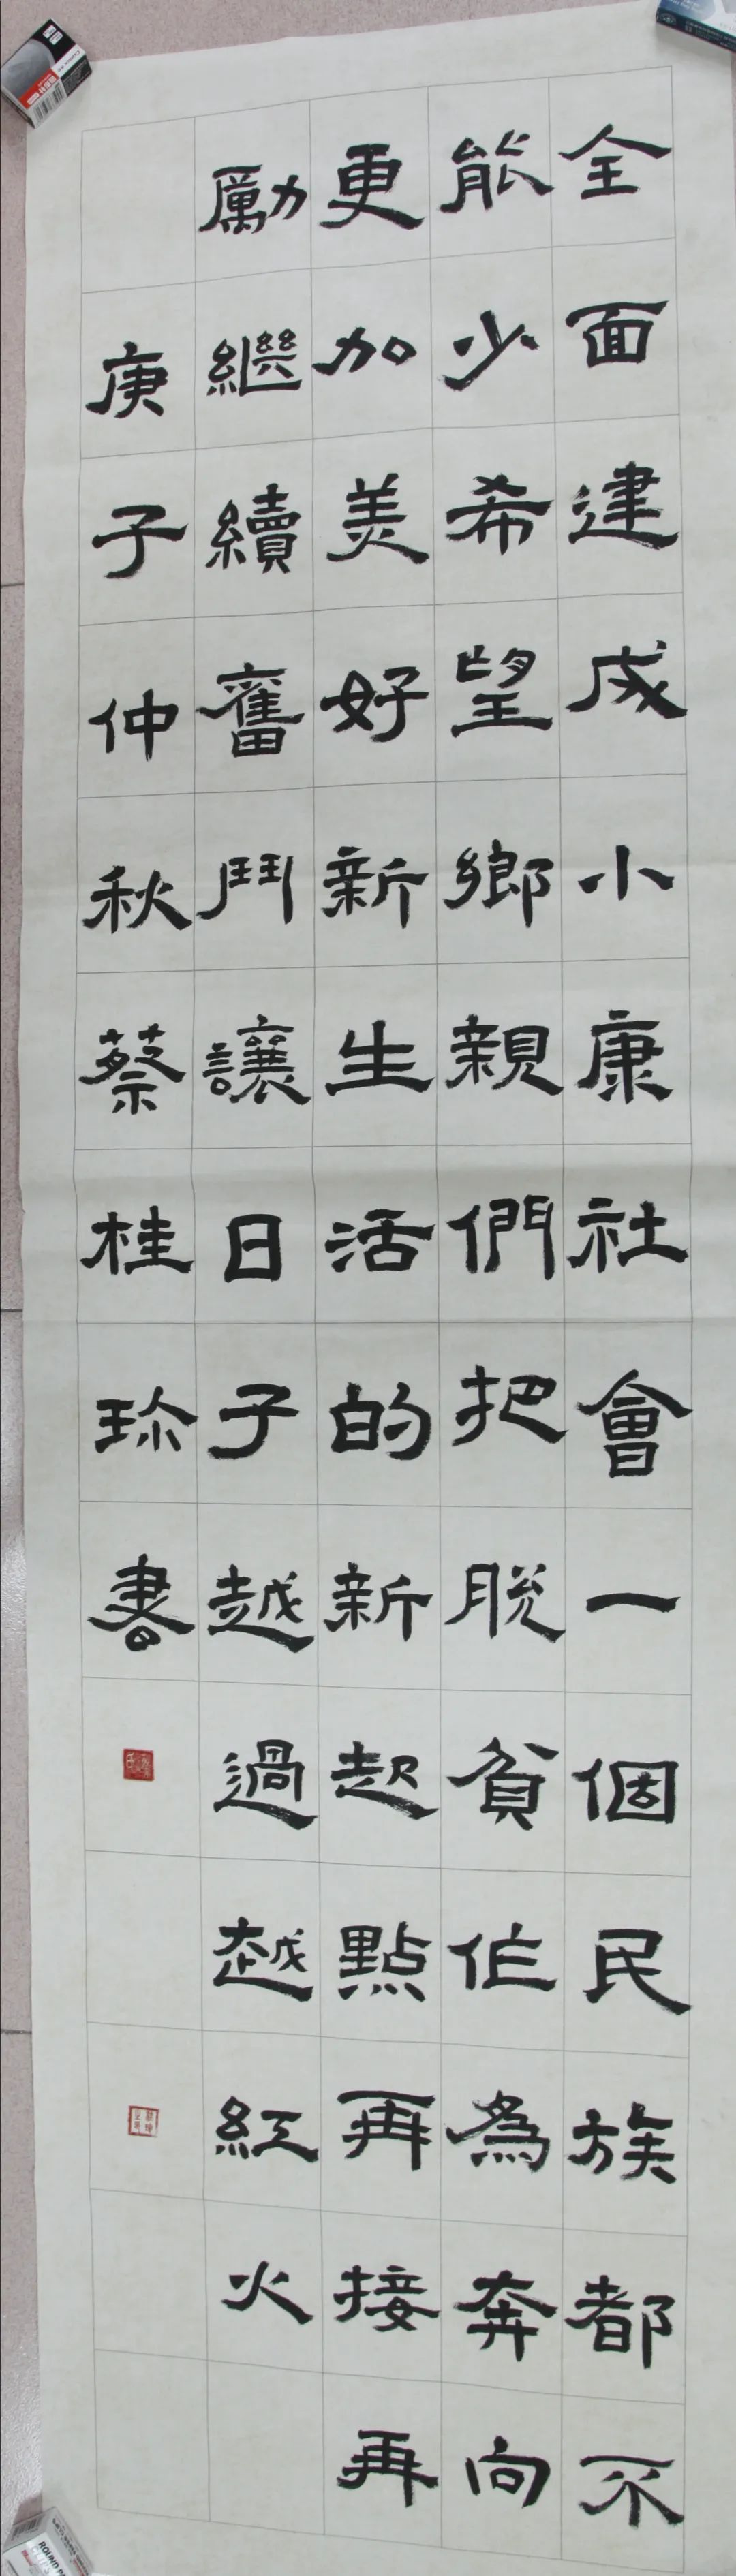 全面建成小康社會一個民族都不
能少希望鄉親們把脫貧作為奔向
更加美好新生活的新起點再接再
勵繼續奮鬥讓日子越過越紅火
庚子仲秋蔡桂珎書